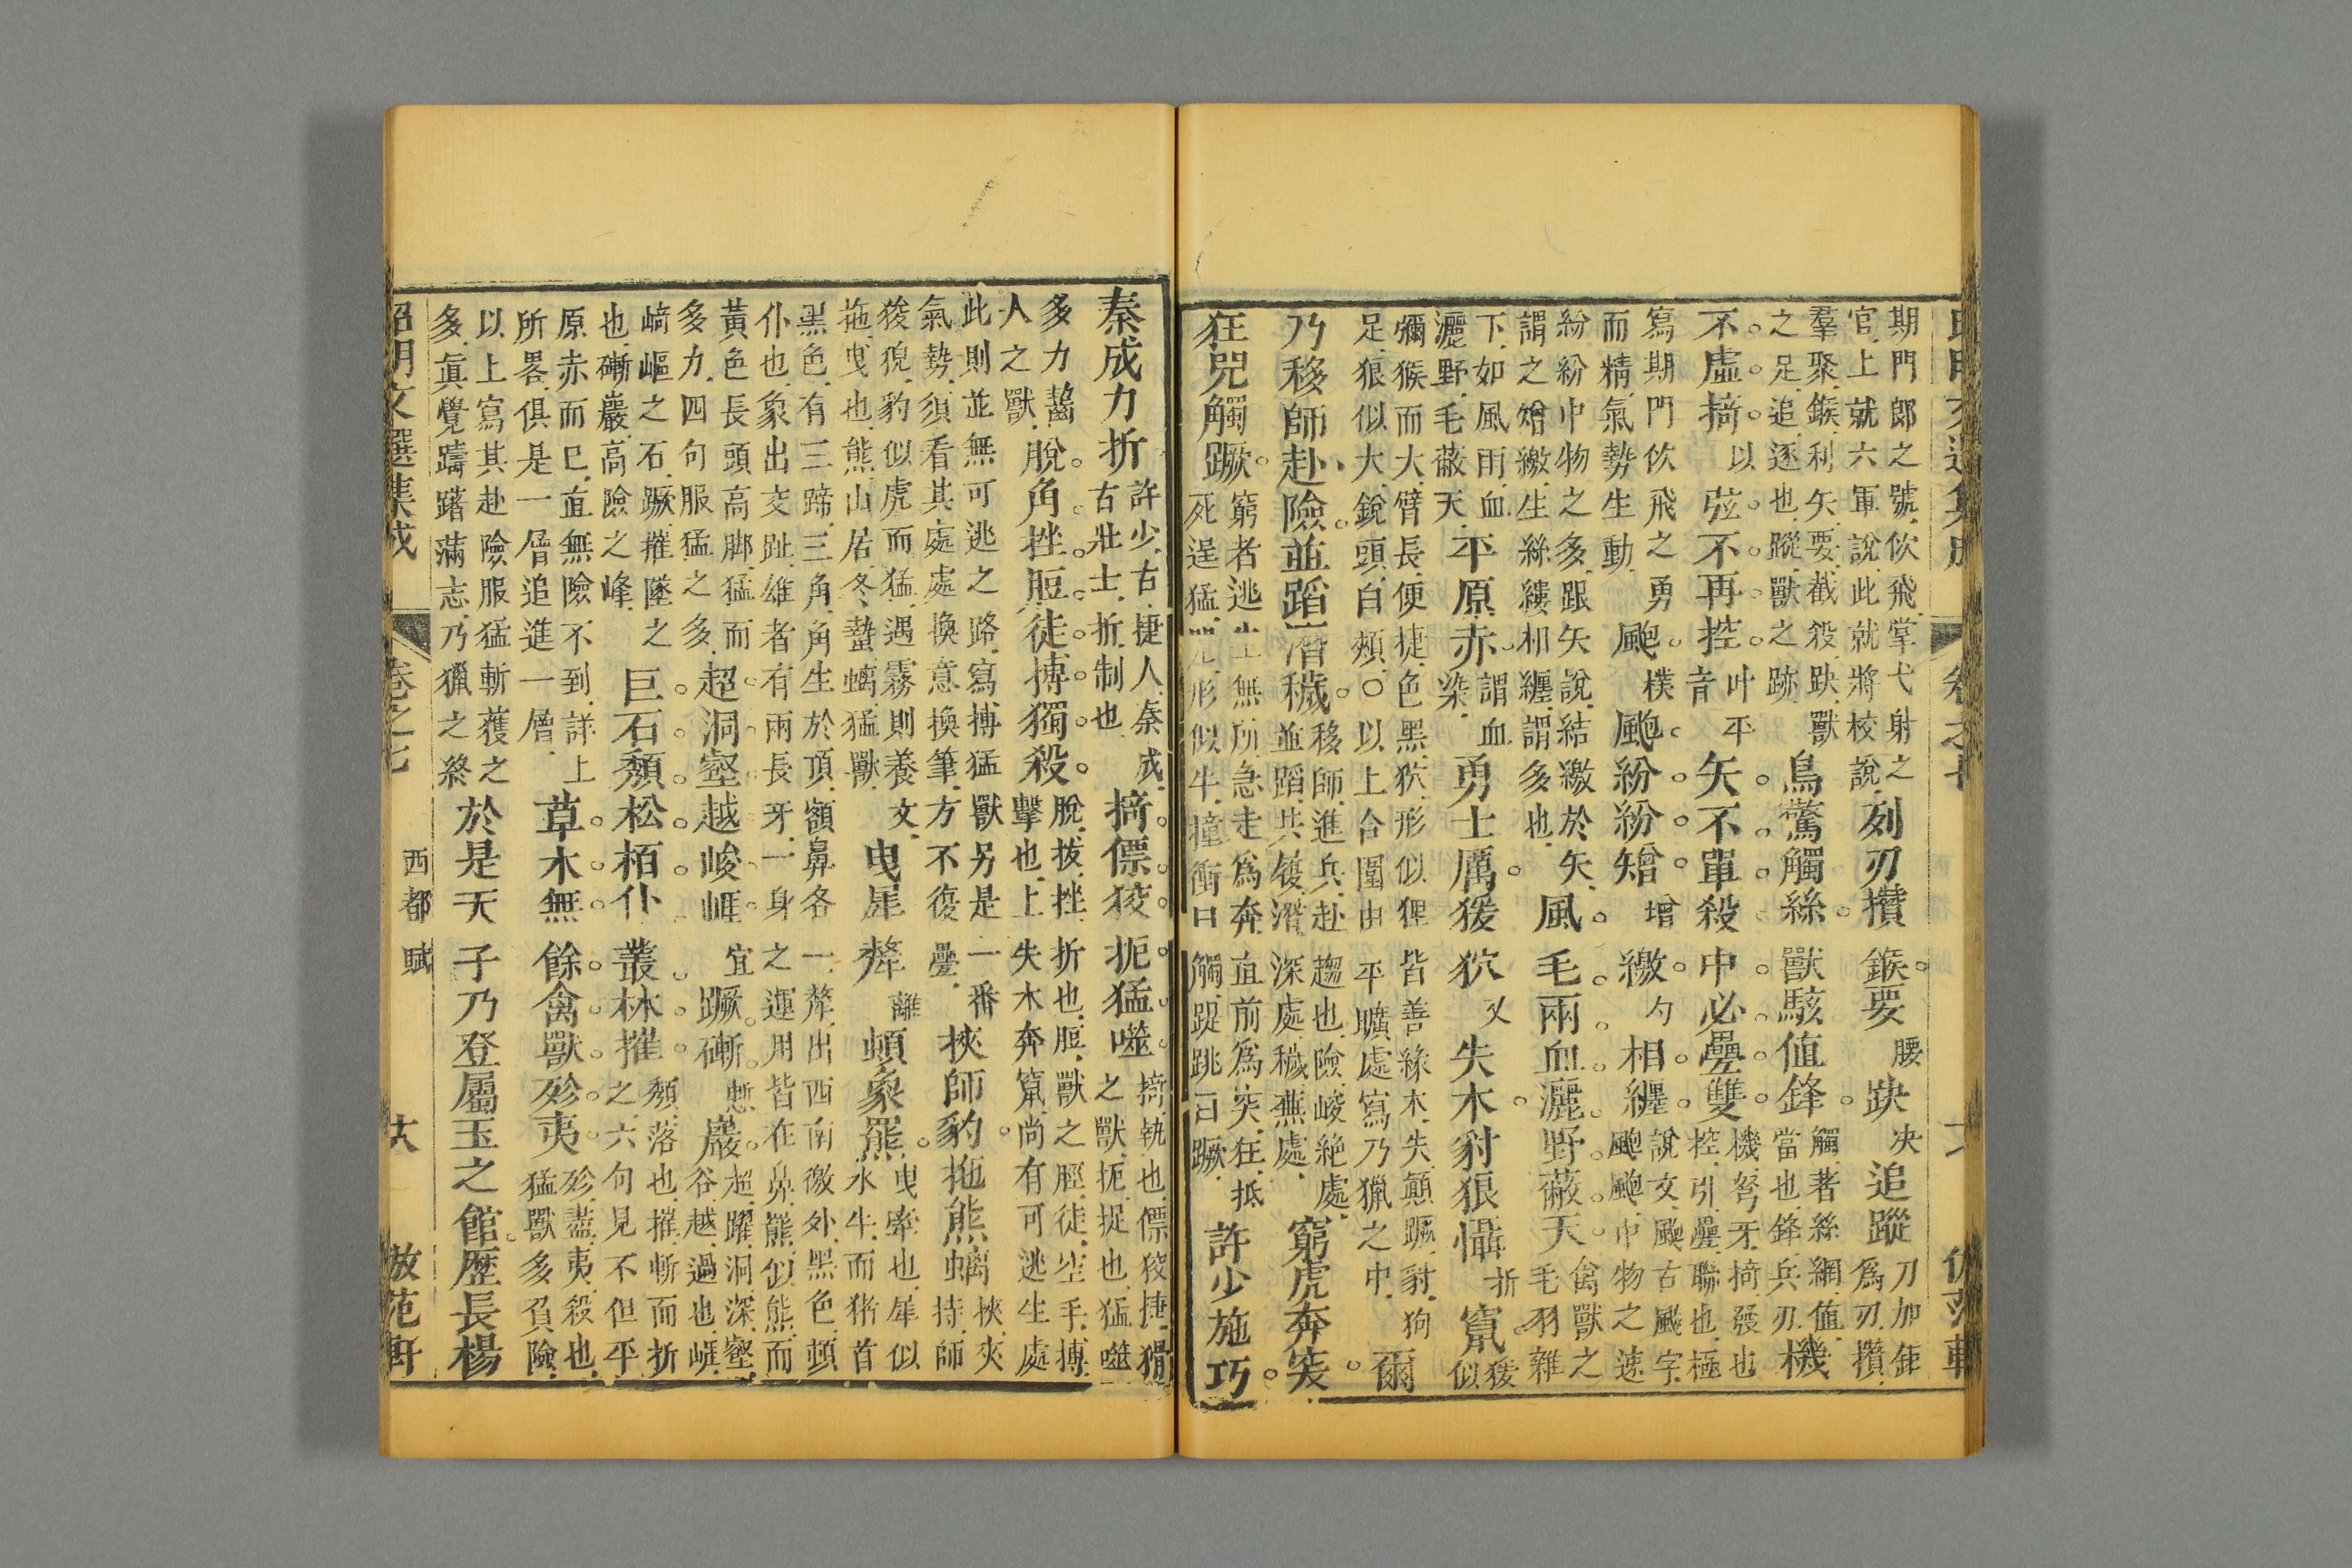 昭明文選集成 卷之七 六 倣范軒
期門郎之號佽飛掌弋射之
官上就六軍說此就將校說
列刃攢鍭要腰趹决追蹤
刀加鉅
爲刃攢
羣聚鍭利矢要截殺趹獸
之足追逐也蹤獸之跡
鳥驚觸絲。獸駭值鋒。
觸著絲網值
當也鋒兵刃
機
不虛掎。以弦不再控。叶平音
矢不單殺。中必疊雙。
機弩牙掎發也
控引疊聯也極
寫期門佽飛之勇
而精氣勢生動
颮樸颮紛紛。矰增繳勺相纏。
說文颮古飈字
颮颮中物之速
紛紛中物之多跟矢說結繳於矢
謂之矰繳生絲縷相纏謂多也
風毛雨血。灑野蔽天。
禽獸之
毛羽雜
下如風雨血
灑野毛蔽天
平原赤。
謂血
染
勇士厲。猨狖乂失木。豺狼懾折竄。
猨
似
獼猴而大臂長便捷色黑狖形似狸皆善緣木失顛蹶豺狗
足狼似犬銳頭白頰○以上合圍由平曠處寫乃獵之中
爾
乃移師赴險。並蹈潛穢。
移師進兵赴趨也險峻絕處
並蹈共履潛深處穢蕪處
窮虎奔突。
狂兕觸蹶。
窮者逃生無所急走爲奔直前爲突狂抵
死逞猛兕形似牛撞衝曰觸踶跳曰蹶
許少施巧。
秦成力折
許少古捷人秦成
古壯士折制也
掎僄狡。扼猛噬。
掎執也僄狡捷猾
之獸扼捉也猛噬
多力齧
人之獸
脫角挫脰。徒搏獨殺。
脫拔挫折也脰獸之脛徒空手搏
擊也上失木奔竄尚有可逃生處
此則並無可逃之路寫搏猛獸另是一番
氣勢須看其處處換意換筆方不復疊
挾師豹。拖熊螭
挾夾
持師
狻猊豹似虎而猛遇霧則養文
拖曳也熊山居冬蟄螭猛獸
曳犀犛離頓象羆。
曳牽也犀似
水牛而猪首
黑色有三蹄三角角生於頂額鼻各一犛出西南徼外黑色頓
仆也象出交趾雄者有兩長牙一身之運用皆在鼻羆似熊而
黃色長頭高脚猛而
多力四句服猛之多
超洞壑。越峻崕。宜蹶嶄慙巖。
超躍洞深壑
谷越過也崕
崎嶇之石蹶摧墜之
也嶄巖高險之峰
巨石頹。松栢仆。叢林摧。
頹落也摧斬而折
之六句見不但平
原赤而已直無險不到詳上
所畧俱是一層追進一層
草木無餘。禽獸殄夷。
殄盡夷殺也
猛獸多負險
以上寫其赴險服猛斬獲之
多眞覺躊躇滿志乃獵之終
於是天子乃登屬玉之館。歷長楊
昭明文選集成 卷之七 西都賦 六 倣范軒